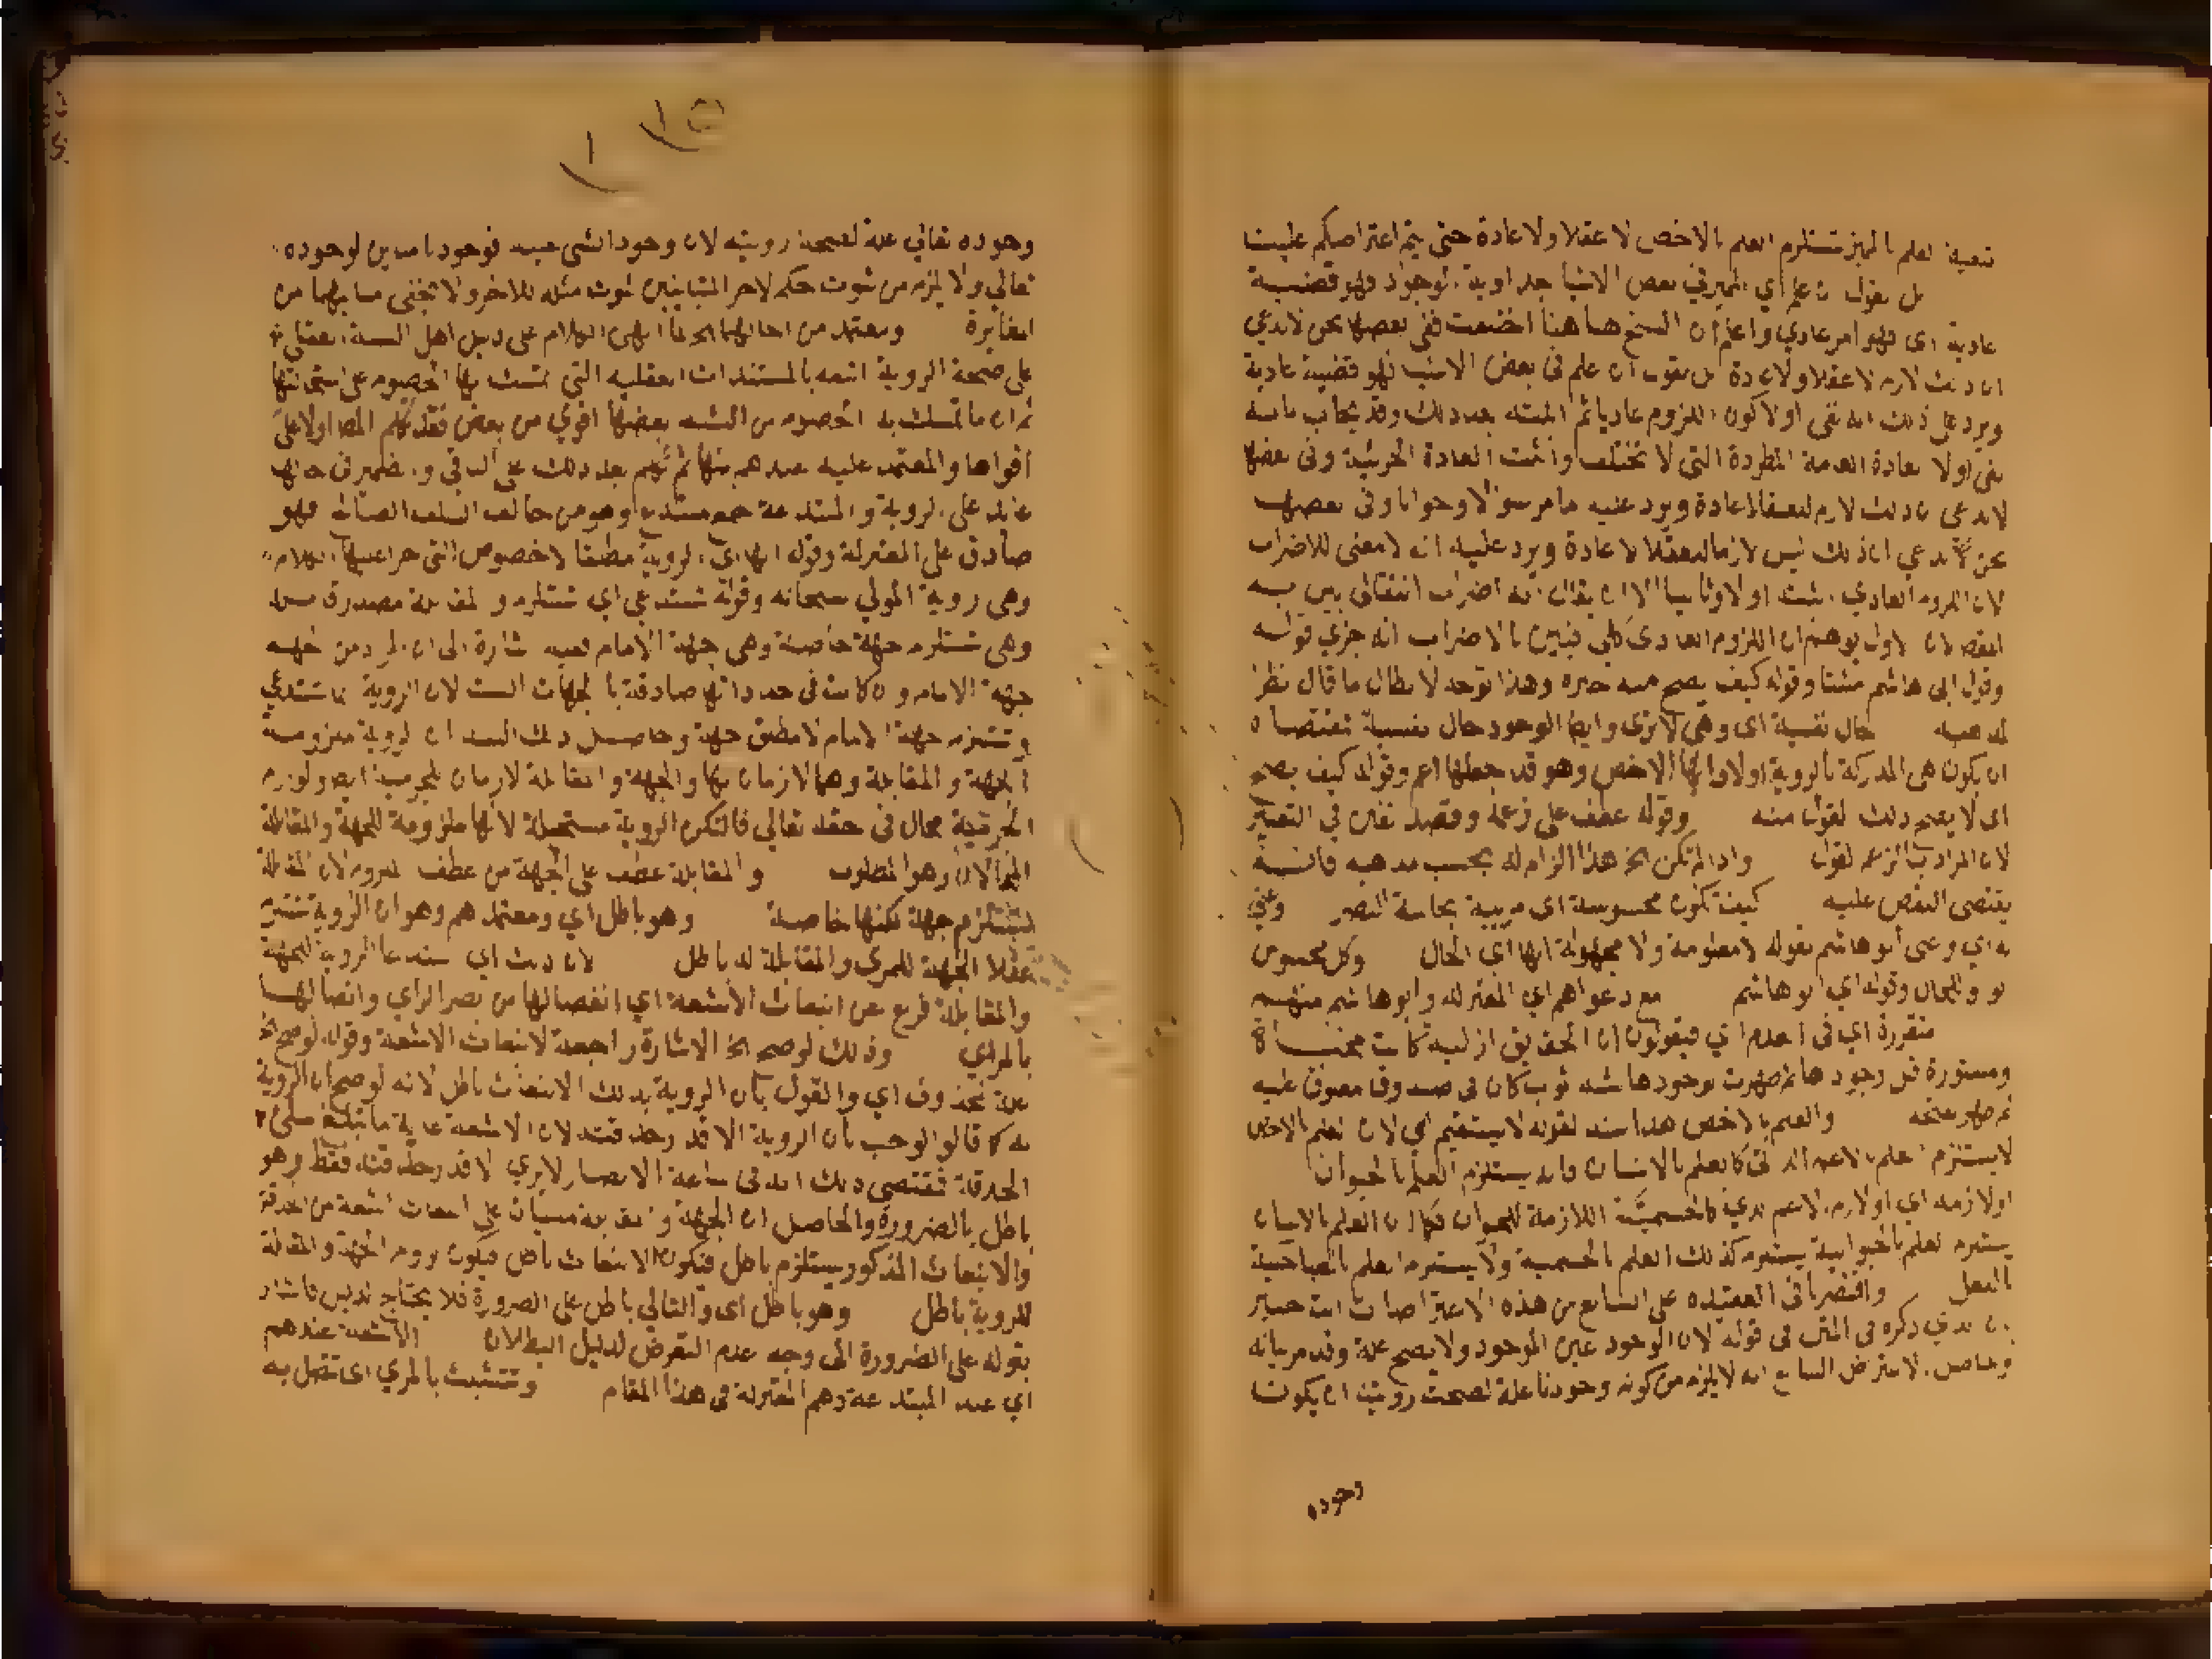 العلم بالمميز تستلزم العلم بالاخص لا عقلا ولا عادة حتى يتم اعتراضكم علينا
بل نقول ان علم اي المميز في بعض الاشيا فهو قضية
عادية اى فهو امر عادي واعلم ان النسخ هاهنا اختلفت ففي بعضها نحن لا ندعي
ان ذلك لازم لا عقلا ولا عادة بل نقول ان علم في بعض الاشيا فهو قضية عادية
ويرد على ذلك انه نفى اولا كون اللزوم عاديا ثم اثبته بعد ذلك وقد يجاب بانه
نفى اولا العادة العامة المطردة التي لا تختلف واثبت العادة الجزئية وفي بعضها
لا ندعي ان ذلك لازم لا عقلا لا عادة ويرد عليه ما مر سوالا وجوابا وفي بعضها
نحن لا ندعي ان ذلك ليس لازما لا عقلا لا عادة ويرد عليه انه لا معنى للاضراب
لان اللزوم العادي اثبت اولا وثانيا الا ان يقال انه اضراب انتقالي بين به
لان الاول يوهم ان اللزوم العادى كلي فبين بالاضراب انه جزي قوله
وقول ابى هاشم مثبتا وقوله كيف يصح منه خبره وهذا توجه لابطال ما قال نظرا
لمذهبه حال نفسية اى وهى لا ترى وايضا الوجود حال نفسية
ان يكون هى المدركة بالروية اولا وانها الاخص وهو قد جعلها اعم وقوله كيف يصح
اى لا يصح ذلك لقول منه وقوله عطف على زعمه وقصد تفنن في التعبير
لان المراد بالزعم القول واذا لم تكن الخ هذا الزام له بحسب مذهبه
يقتضى النقض عليه كيف تكون محسوسة اى مرئية بحاسة البصر وعنى
به اي وعنى أبو هاشم بقوله لا معلومة ولا مجهولة انها اي الحال وكل محسوس
وقوله اي ابو هاشم مع دعواهم اي المعتزلة وابو هاشم منهم
متقررة اي في العدم اي فيقولون ان الحقايق ازلية كانت
ومستورة قبل وجودها ثم ظهرت بوجودها شبه ثوب كان فى صندوق
والعلم بالاخص هذا سند لقوله لا يستقيم اي لان العلم بالاخص
لا يستلزم العلم بالاعم الذاتى كالعلم بالانسان فانه يستلزم العلم بالحيوان
او لازمه اي او لازم الاعم كالجسمية اللازمة للحيوان فكما ان العلم بالانسان
يستلزم العلم بالحيوانية يستلزم كذلك العلم بالجسمية ولا يستلزم العلم بالضاحكية
بالفعل واقتصرنا في العقيده على السابع من هذه الاعتراضات انت خبير
بان الذي ذكره فى المتن فى قوله لان الوجود عين الموجود ولا يصح علة وقد مر بيانه
وحاصل الاعتراض السابع انه لا يلزم من كونه وجودنا علة لصحت رويتنا ان يكون
وجوده
١١٥
١
وجوده تعالي علة لصحة رويته لان وجود الشى عينه فوجودنا مباين لوجوده
تعالى ولا يلزم من ثبوت حكم لاحد المتباينين ثبوت مثله للاخر ولا يخفى ما بينهما من
المغايرة ومعتمد من احالها الخ لما انهى الكلام على دليل اهل السنة العقلي
على صحة الروية اتبعه بالمستندات العقليه التي تمسك بها الخصوم على استحالتها
ثم ان ما تمسك به الخصوم من الشبه بعضها اقوي من بعض فقد تكلم المصـ اولا على
اقواها والمعتمد عليه عندهم منها ثم تكلم بعد ذلك على الباقي والضمير في احالها
عايد على الروية والمبتدعة جمع مبتدع وهو من خالف السلف الصالح فهو
صادق على المعتزلة وقوله انها اى الروية مطلقا لا خصوص التى جرا فيها الكلام
وهى روية المولي سبحانه وقوله تستدعي اي تستلزم والمقابلة مصدر قابل
وهى تستلزم جهة خاصة وهى جهة الامام ففيه اشارة الى ان المراد من الجهة
جهة الامام وان كانت فى حد ذاتها صادقة بالجهات الست لان الروية انما تستدعي
وتستلزم جهة الامام لا مطلق جهة وحاصل ذلك السند ان الروية ملزومة
للجهة والمقابلة وهما لازمان لها والجهة والمقابلة لازمان للجرمية ايضـ ولوازم
الجرمية محال فى حقه تعالي فالتكون الروية مستحيلة لانها ملزومة للجهة والمقابلة
المحالان وهو المطلوب والمقابلة عطف على الجهة من عطف الملزوم لان المقابلة
تستلزم جهة لكنها خاصة وهو باطل اي ومعتمدهم وهو ان الروية تستلزم
عقلا الجهة للمرى والمقابلة له باطل لان ذلك اي استدعا الروية للجهة
والمقابلة فرع عن انبعاث الأشعة اي انفصالها من بصر الراي واتصالها
بالمراي وذلك لو صح الخ الاشارة راجعة لانبعاث الاشعة وقوله لو صح الخ
علة لمحذوف اي والقول بأن الروية بذلك الانبعاث باطل لانه لو صح ان الروية
به كما قالوا لوجب بأن الروية الا قدر حدقته لان الاشعة غاية ما تبلغ ملئ
الحدقة فتقتضى ذلك انه فى ساعة الابصار لا يري الا قدر حدقته فقط وهو
باطل بالضرورة والحاصل ان الجهة والمقابلة مبنيان على انبعاث اشعة من الحدقة
والانبعاث المذكور يستلزم باطل فيكون الانبعاث باطل فيكون لزوم الجهة والمقابلة
للروية باطل وهو باطل اى والتالي باطل على الضرورة فلا يحتاج لدليل فاشار
بقوله على الضرورة الى وجه عدم التعرض لدليل البطلان الأشعة عندهم
اي عند المبتدعة وهم المعتزلة فى هذا المقام وتتشبث بالمري اى تتصل به